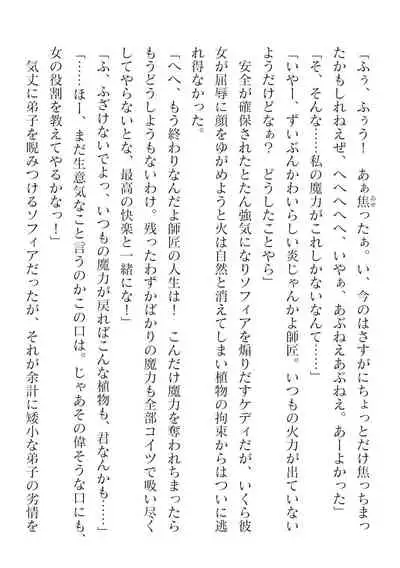 「ふぅ、ふぅう！　あぁ焦ったぁ。い、今のはさすがにちょっとだけ焦っちまっ
あせ
たかもしれねえぜ、へへへへへ、いやぁ、あぶねえあぶねえ。あーよかった」
「そ、そんな……私の魔力がこれしかないなんて……」
「いやー、ずいぶんかわいらしい炎じゃんかよ師匠。いつもの火力が出ていない
ようだけどなぁ？　どうしたことやら」
安全が確保されたとたん強気になりソフィアを煽りだすケディだが、いくら彼
女が屈辱に顔をゆがめようと火は自然と消えてしまい植物の拘束からはついに逃
れ得なかった。
「へへ、もう終わりなんだよ師匠の人生は！　こんだけ魔力を奪われちまったら
もうどうしようもないわけ。残ったわずかばかりの魔力も全部コイツで吸い尽く
してやらないとな、最高の快楽と一緒にな！」
「ふ、ふざけないでよっ、いつもの魔力が戻ればこんな植物も、君なんかも……」
「……ほー、まだ生意気なこと言うのかこの口は。じゃあその偉そうな口にも、
女の役割を教えてやるかなっ！」
気丈に弟子を睨みつけるソフィアだったが、それが余計に矮小な弟子の劣情を